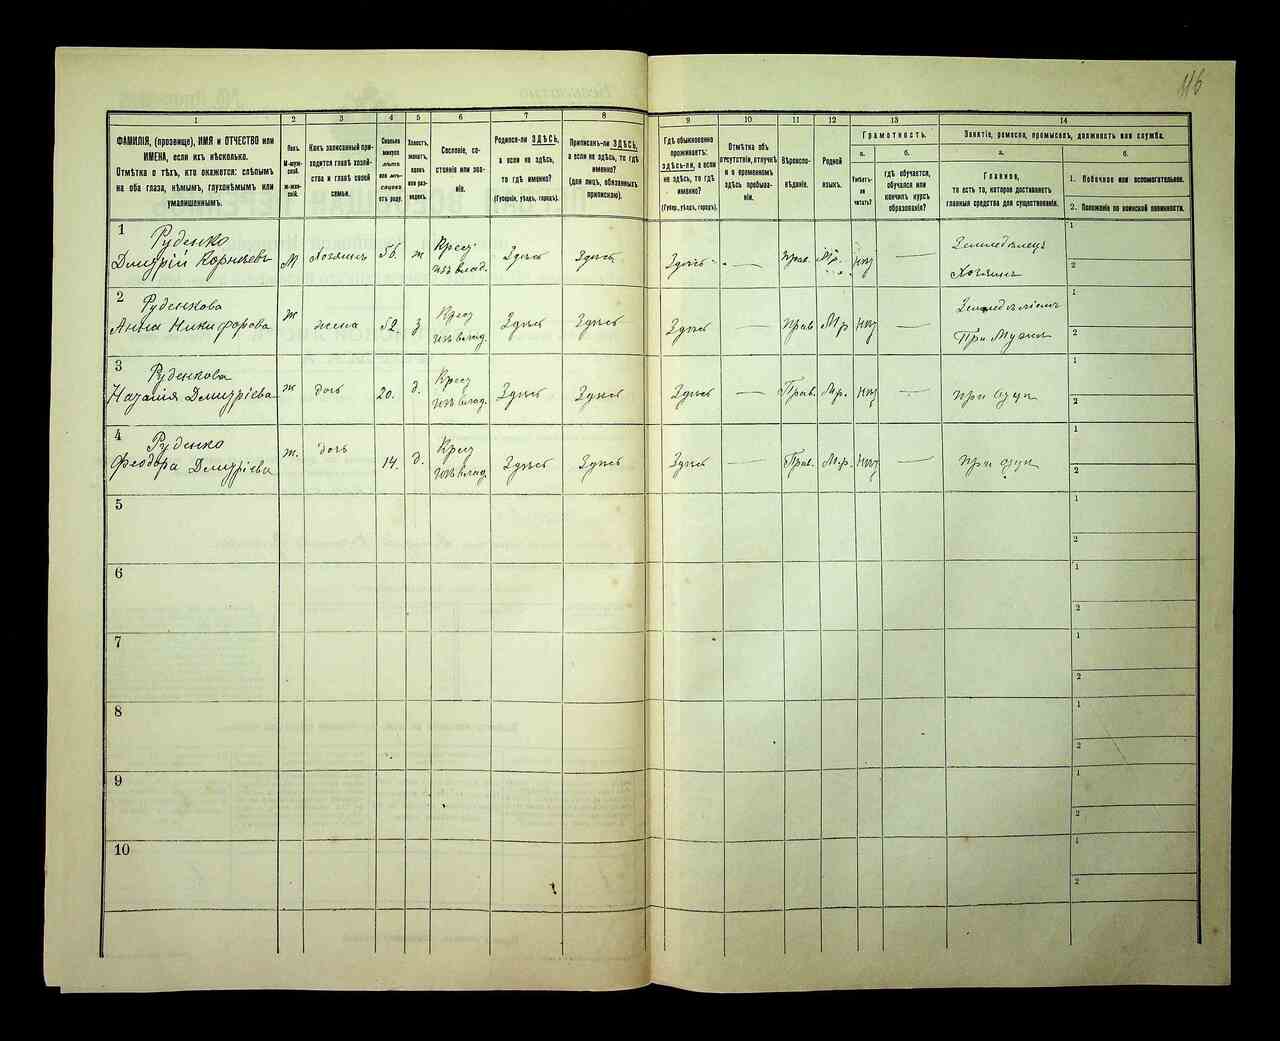 116
1
2
3
4
5
6
7
8
9
10
11
12
13
14
ФАМИЛІЯ, (прозвище), ИМЯ и ОТЧЕСТВО или
ИМЕНА, если ихъ нѣсколько.
Отмѣтка о тѣхъ, кто окажется: слѣпымъ
на оба глаза, нѣмымъ, глухонѣмымъ или
умалишеннымъ.
Полъ.
М-муж-
ской.
ж-жен-
скій.
Какъ записанный при-
ходится главѣ хозяй-
ства и главѣ своей
семьи.
Сколько
минуло
лѣтъ
или мѣ-
сяцевъ
отъ роду.
Холостъ,
женатъ,
вдовъ
или раз-
веденъ.
Сословіе, со-
стояніе или зва-
ніе.
Родился-ли ЗДѢСЬ,
а если не здѣсь,
то гдѣ именно?
(Губернія, уѣздъ, городъ).
Приписанъ-ли ЗДѢСЬ,
а если не здѣсь, то гдѣ
именно?
(для лицъ, обязанныхъ
припискою).
Гдѣ обыкновенно
проживаетъ:
здѣсь-ли, а если
не здѣсь, то гдѣ
именно?
(Губер., уѣздъ, городъ).
Отмѣтка объ
отсутствіи, отлучкѣ
и о временномъ
здѣсь пребыва-
ніи.
Вѣроиспо-
вѣданіе.
Родной
языкъ.
Грамотность.
а.
б.
Умѣетъ-
ли
читать?
гдѣ обучается,
обучался или
кончилъ курсъ
образованія?
Занятіе, ремесло, промыселъ, должность или служба.
а.
б.
Главное,
то есть то, которое доставляетъ
главныя средства для существованія.
1. Побочное или вспомогательное.
2. Положеніе по воинской повинности.
1
Руденко
Дмитрій Корнѣевъ М Хозяинъ 56. ж Крест изъ влад. Здѣсь Здѣсь Здѣсь — Прав. М.р. нѣт —
Земледѣлецъ
Хозяинъ
1
2
2
Руденкова
Анна Никифорова ж жена 52. з Крест изъ влад. Здѣсь Здѣсь Здѣсь — Прав М.р нѣт —
При Мужѣ
1
2
3
Руденкова
Наталия Дмитріева ж дочь 20. д. Крест изъ влад. Здѣсь Здѣсь Здѣсь — Прав. М.р. нѣт —
при отцѣ
1
2
4
Руденко
Феодора Дмитріева ж. дочь 14. д. Крест изъ влад. Здѣсь Здѣсь Здѣсь — Прав. М.р. нѣт —
при отцѣ
1
2
5
1
2
6
1
2
7
1
2
8
1
2
9
1
2
10
1
2